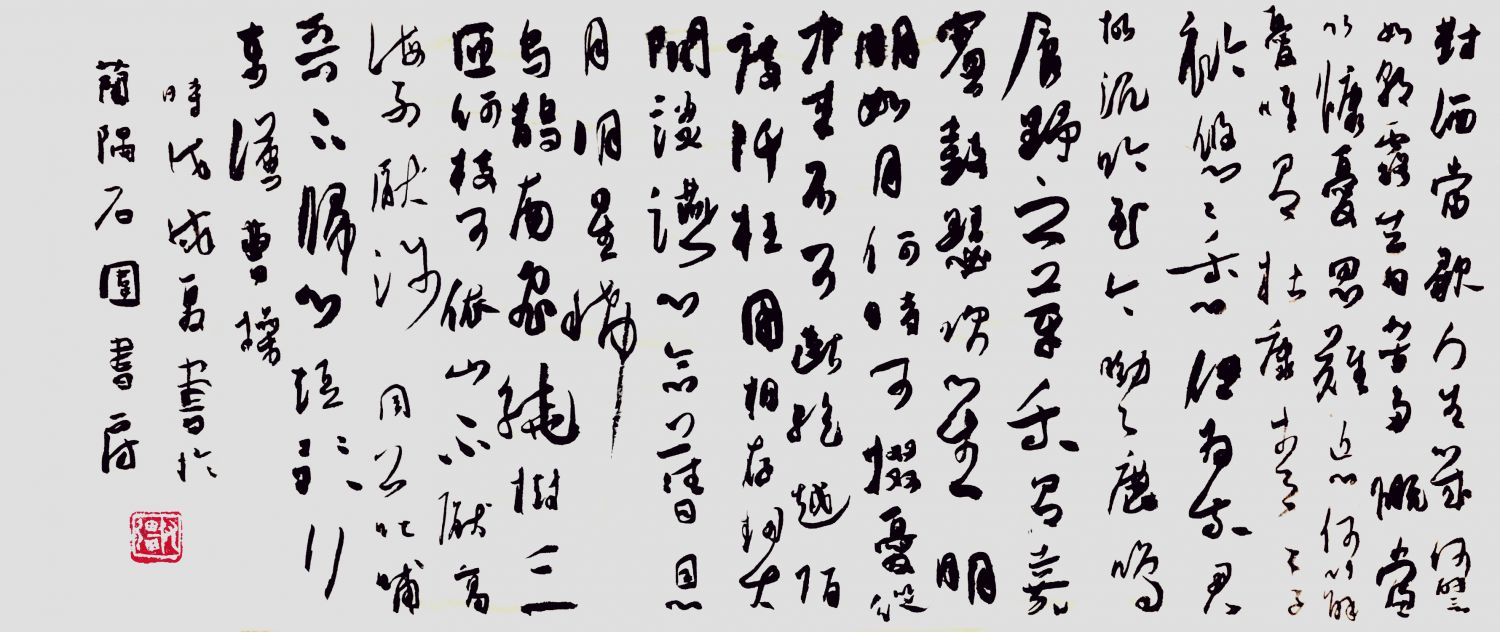 對酒當歌人生幾何譬
如朝露去日苦多慨當
以慷憂思難忘何以解
憂唯有杜康青々子
衿悠々我心但為君
故沉吟至今呦々鹿鳴
食野之苹我有嘉
賓鼓瑟吹笙明
明如月何時可掇憂從
中來不可斷絕越陌
度阡枉用相存契
闊談讌心念舊恩
月明星稀
烏鵲南飛繞樹三
匝何枝可依山不厭高
海不厭深周公吐哺
天下歸心短歌行
東漢曹操
時戊戌夏書於
蘭陽石園書房